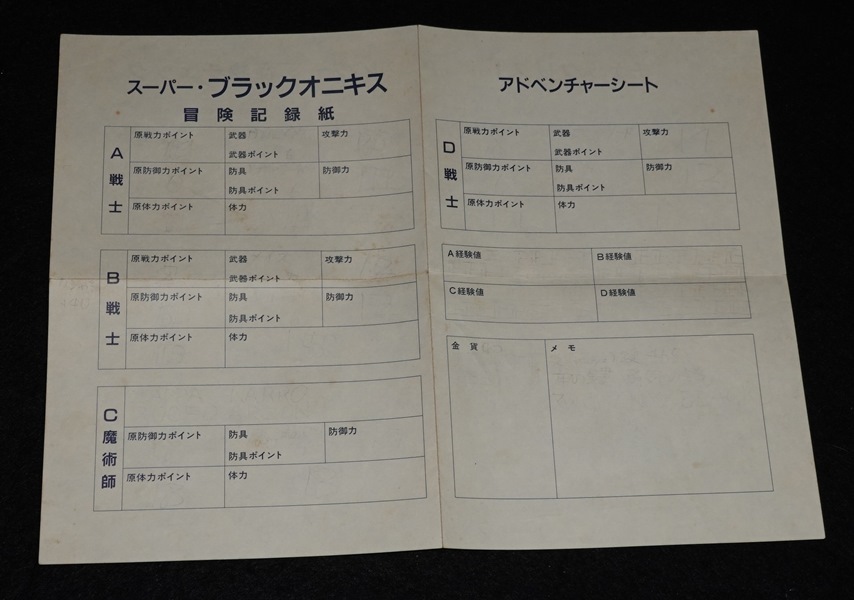 スーパー・ブラックオニキス
冒険記録紙
A戦士
原戦力ポイント 武器 攻撃力
武器ポイント
原防御力ポイント 防具 防御力
防具ポイント
原体力ポイント 体力
B戦士
原戦力ポイント 武器 攻撃力
武器ポイント
原防御力ポイント 防具 防御力
防具ポイント
原体力ポイント 体力
C魔術師
原防御力ポイント 防具 防御力
防具ポイント
原体力ポイント 体力
アドベンチャーシート
D戦士
原戦力ポイント 武器 攻撃力
武器ポイント
原防御力ポイント 防具 防御力
防具ポイント
原体力ポイント 体力
A経験値 B経験値
C経験値 D経験値
金貨 メモ